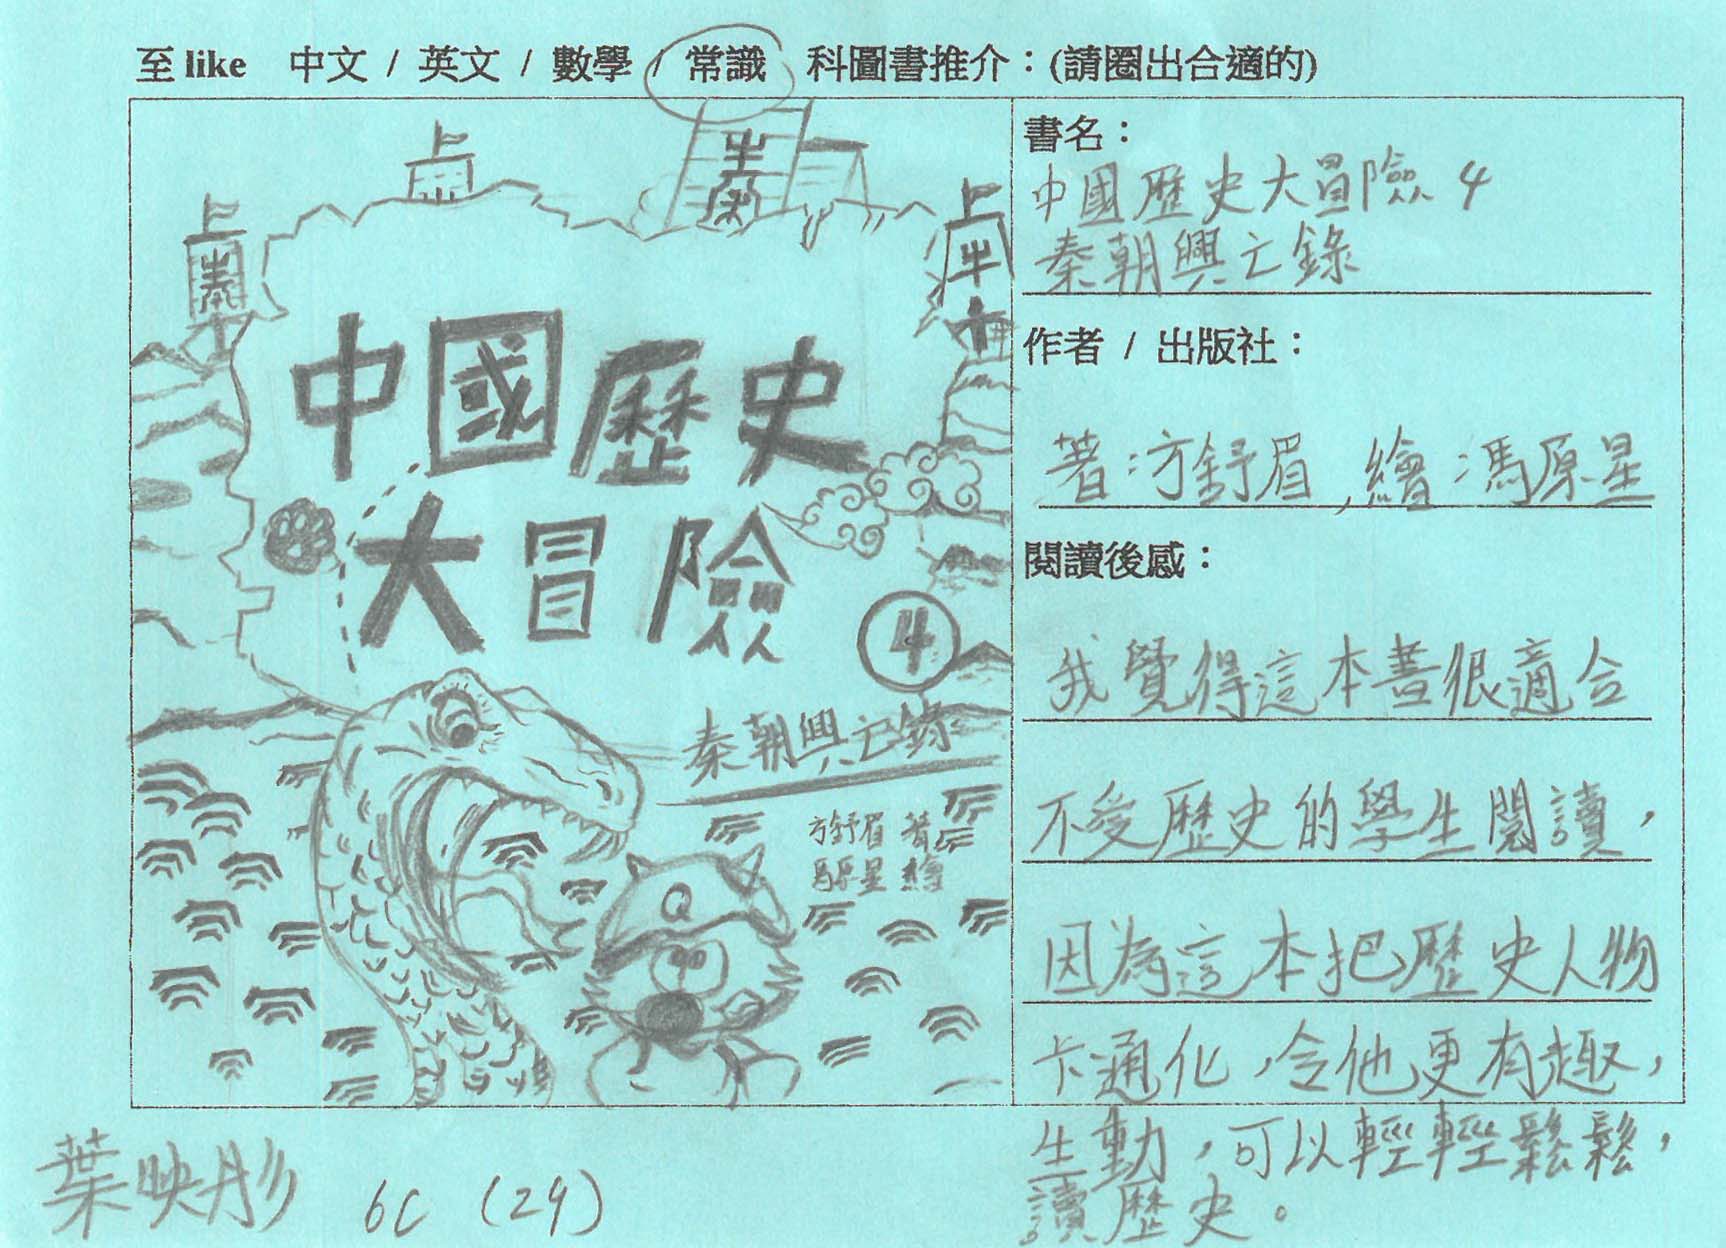 至like 中文 / 英文 / 數學 / 常識 科圖書推介：(請圈出合適的)
中國歷史
大冒險
4
秦朝興亡錄
方舒眉 著
馬原星 繪
Q
書名：
中國歷史大冒險 4
秦朝興亡錄
作者 / 出版社：
著：方舒眉，繪：馮原星
閱讀後感：
我覺得這本書很適合
不愛歷史的學生閱讀，
因為這本把歷史人物
卡通化，令他更有趣，
生動，可以輕輕鬆鬆，
讀歷史。
葉映彤 6C (29)